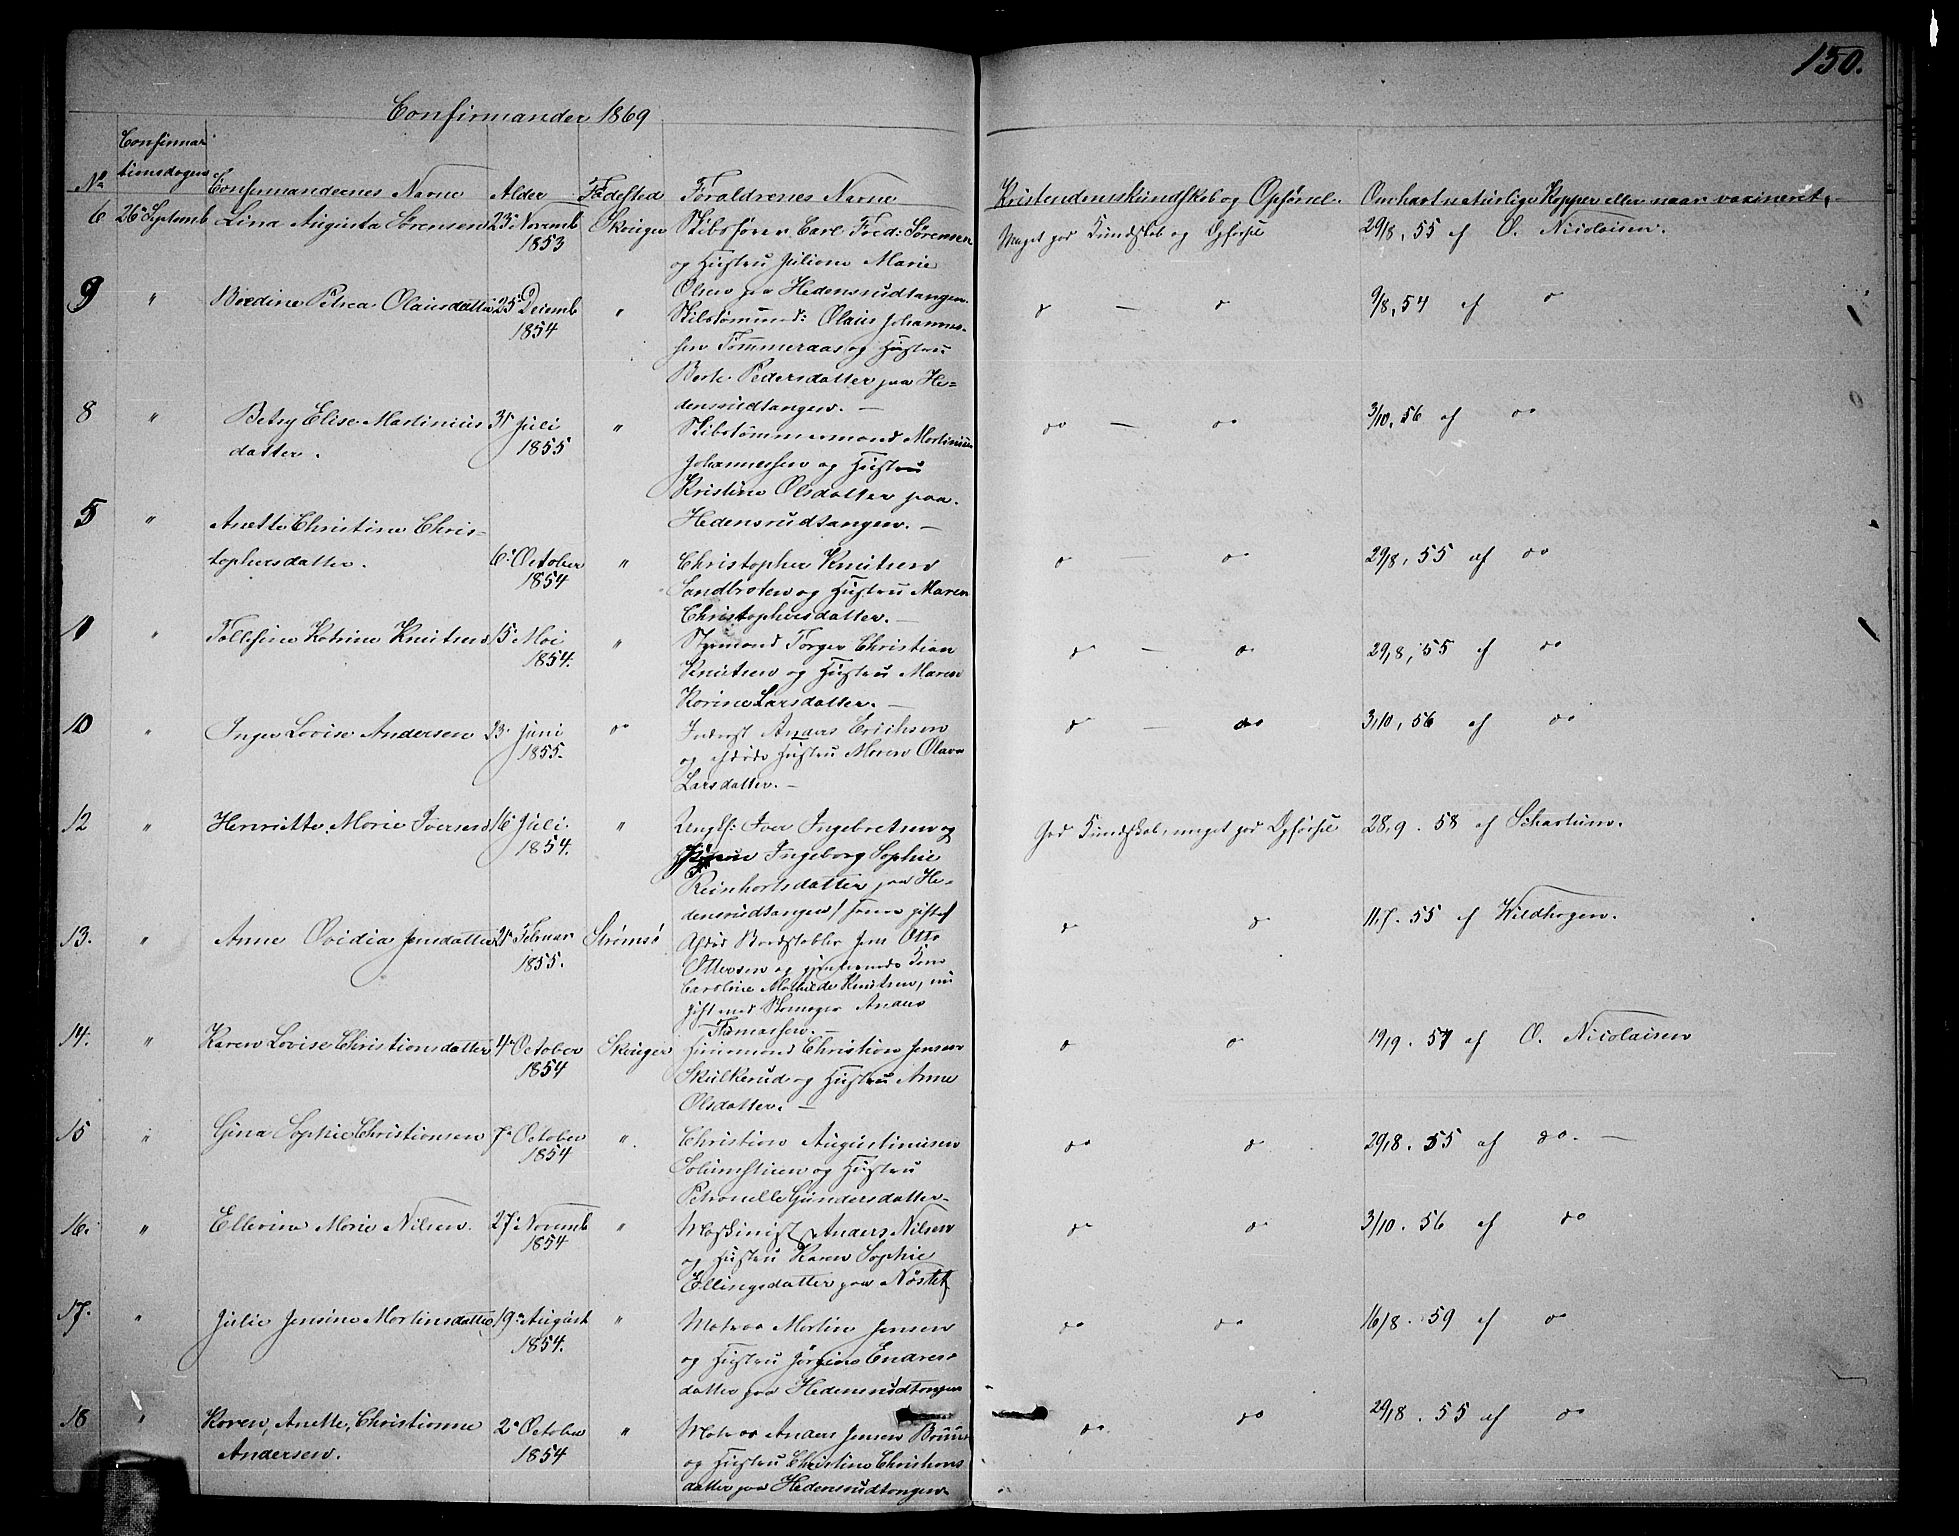 150.
Confirmander 1869
No Confirmationsdagen Confirmandernes Navne Alder Fødested Forældrenes Navne Kristendomskundskab og Opførsel. Om havt naturlige Kopper eller naar vaxineret.
6 26de Septemb Lina Augusta Sørensen 23de Novemb Skouger Skibsfører Carl Fred: Sørensen Meget god Kundskab og Opførsel 29/8, 55 af O. Nicolaisen.
1853 og Hustru Juliane Marie
Olsen paa Hedensrudtangen.
9 " Berdine Petrea Olausdatter 25de Decemb " Skibstømmend: Olaus Johannes- do — do 9/8, 54 af do
1854 sen Tømmeraas og Hustru
Berte Pedersdatter paa He-
densrudtangen. —
8 " Betsy Elise Martinius 31 Juli " Skibstømmermand Martinius do — do 3/10, 56 af do
datter. 1855 Johannessen og Hustru
Kristine Olsdatter paa
Hedensrudtangen. —
5 " Anette Christine Chris-
tophersdatter. 6te October " Christopher Knutsen do — do 29/8, 55 af do
1854 Sandbroten og Hustru Maren
Christophersdatter. —
11 " Tollefine Katrine Knutsen 15de Mai " Styrmand Torger Christian do — do 29/8, 55 af do
1854. Knutsen og Hustru Maren
Karine Larsdatter. —
10 " Inger Lovise Andersen 23. Juni do Inderst Anders Erichsen do — do 3/10, 56 af do
1855. og afdøde Hustru Maren Olava
Larsdatter. —
12 " Henriette Marie Iversen 16 Juli " Ungkf: Iver Ingebretsen og God Kundskab, meget god Opførsel 28/9. 58 af Schartum.
1854. Pigen Ingeborg Sophie
Reinhartsdatter paa He-
densrudtangen
13. " Anne Ovidia Jensdatter 21 Februar Strømsø Afdød Bordstabler Jens Otto do do 11/7. 55 af Wildhagen.
1855. Ottersen og gjenlevende Kone
Caroline Mathilde Knutsen, nu
gift med Skomager Anders
Thomassen. —
14. " Karen Lovise Christiansdatter 4de October Skouger Huusmand Christian Jensen do do 19/9. 57 af O. Nicolaisen
1854 Skulkerud og Hustru Anne
Olsdatter. —
15 " Gina Sophie Christiansen 7de October " Christian Augustinusen do do 29/8. 55 af do. —
1854 Solumstien og Hustru
Petronelle Gundersdatter.
16. " Ellevine Marie Nilsen. 27 Novemb " Maskinist Anders Nilsen do do 3/10. 56 af do
1854 og Hustru Karen Sophie
Ellingsdatter paa Nøstet
17. " Julie Jensine Martinsdatter 19de August " Matros Martin Jensen do do 16/8. 59 af do
1854. og Hustru Jørgine Endres-
datter paa Hedensrudtangen
18 " Karen, Anette, Christianne 2de October " Matros Anders Jensen do. do 29/8. 55 af do
Andersen. 1854 og Hustru Christine Christians
datter paa Hedensrudtangen